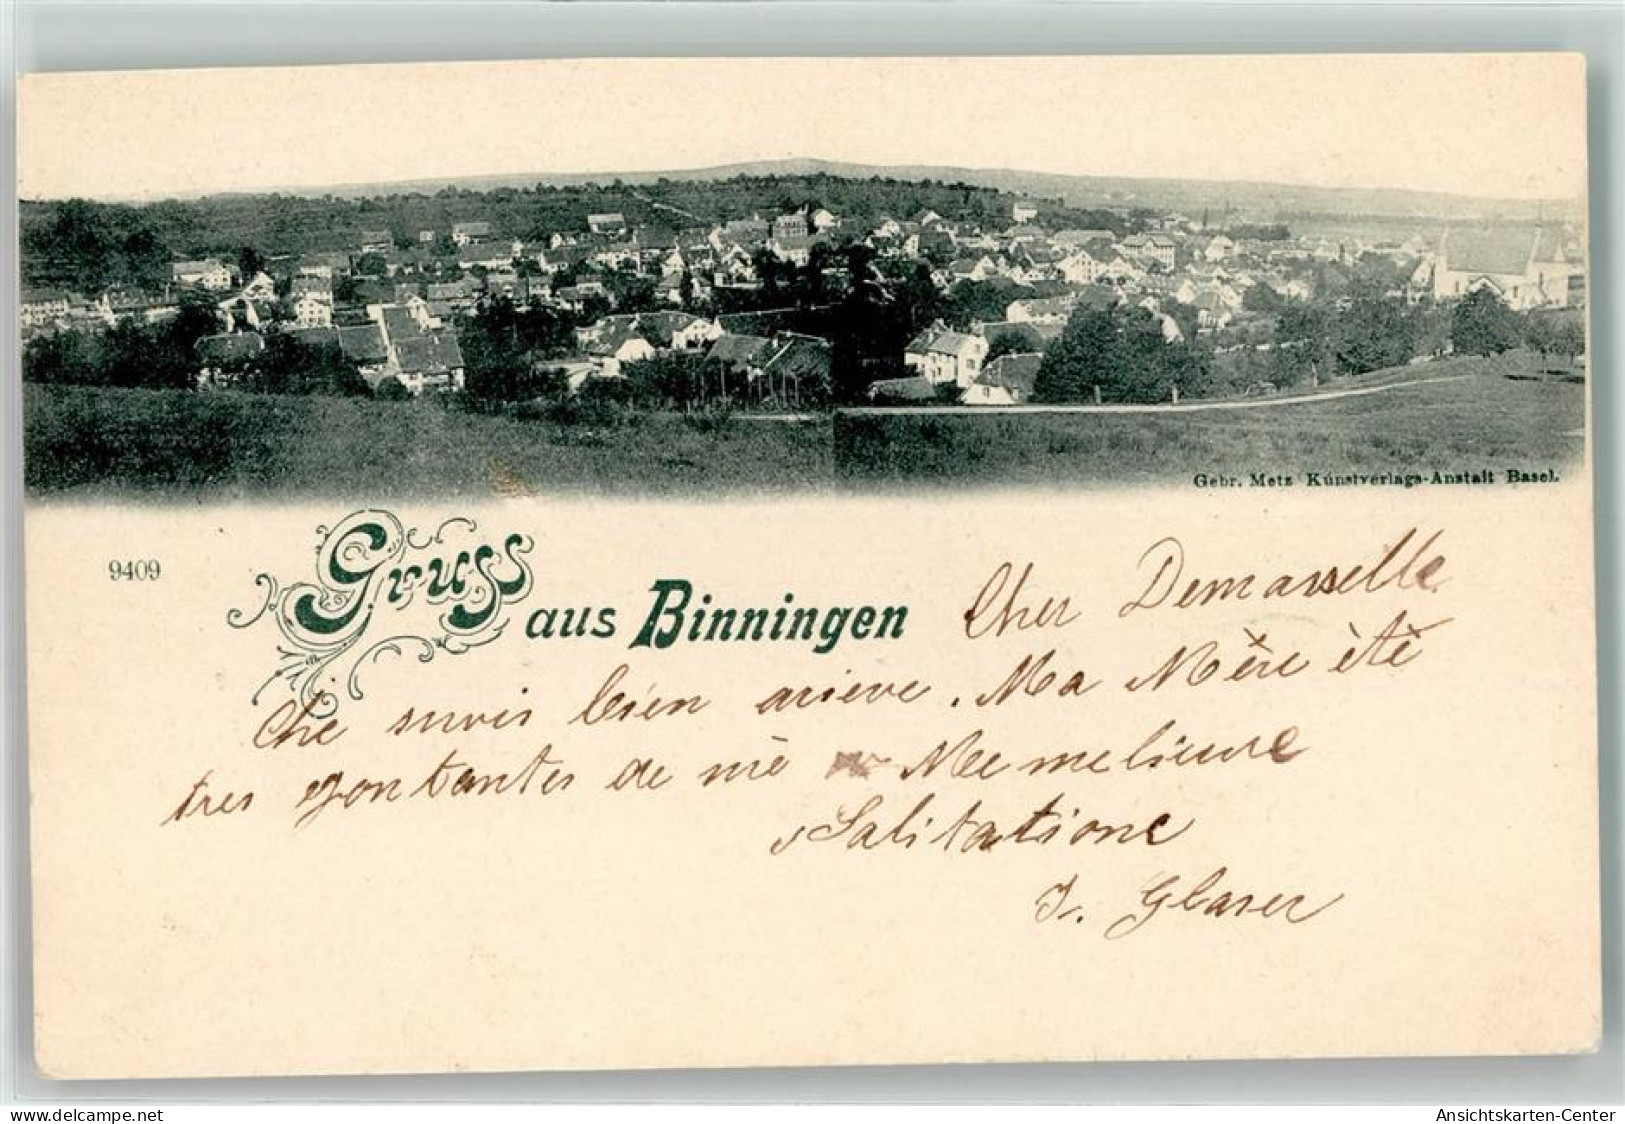 Gebr. Metz Kunstverlags-Anstalt Basel.
9409
Gruss aus Binningen
Cher Demasselle
Che suvis bien arieve. Ma Mère ètè
tres gontantes de mè Mee melieure
Salitatione
J. Glaser
www.delcampe.net
Ansichtskarten-Center